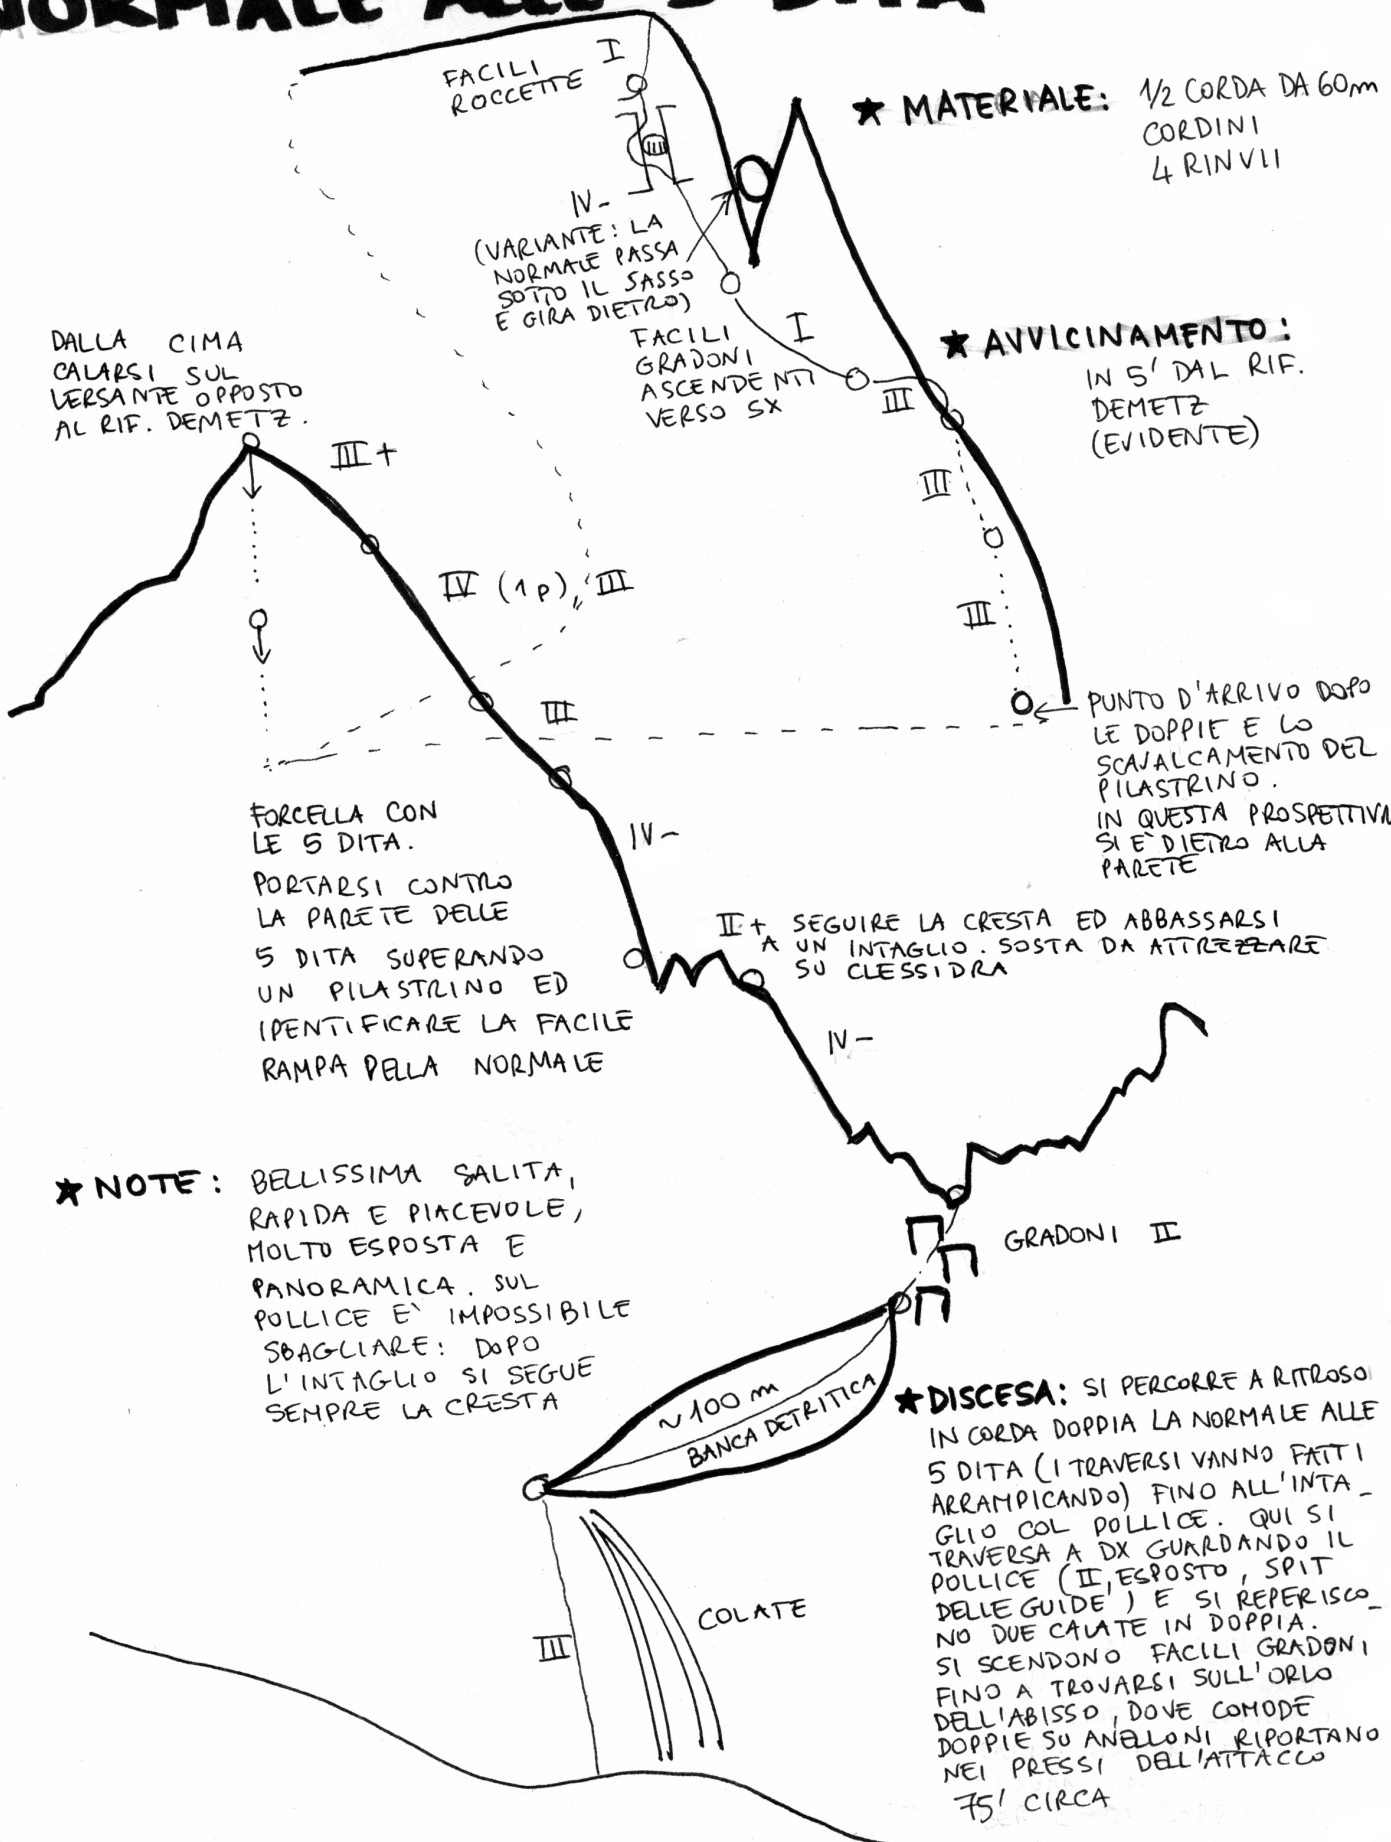 NORMALE ALLE 5 DITA
FACILI
ROCCETTE
I
III
IV-
(VARIANTE: LA
NORMALE PASSA
SOTTO IL SASSO
E GIRA DIETRO)
★ MATERIALE: 1/2 CORDA DA 60m
CORDINI
4 RINVII
FACILI
GRADONI
ASCENDENTI
VERSO SX
I
III
★ AVVICINAMENTO:
IN 5' DAL RIF.
DEMETZ
(EVIDENTE)
III
III
DALLA CIMA
CALARSI SUL
VERSANTE OPPOSTO
AL RIF. DEMETZ.
III+
IV (1p), III
III
PUNTO D'ARRIVO DOPO
LE DOPPIE E LO
SCAVALCAMENTO DEL
PILASTRINO.
IN QUESTA PROSPETTIVA
SI E' DIETRO ALLA
PARETE
FORCELLA CON
LE 5 DITA.
PORTARSI CONTRO
LA PARETE DELLE
5 DITA SUPERANDO
UN PILASTRINO ED
IDENTIFICARE LA FACILE
RAMPA DELLA NORMALE
IV-
II+ SEGUIRE LA CRESTA ED ABBASSARSI
A UN INTAGLIO. SOSTA DA ATTREZZARE
SU CLESSIDRA
IV-
★ NOTE: BELLISSIMA SALITA,
RAPIDA E PIACEVOLE,
MOLTO ESPOSTA E
PANORAMICA. SUL
POLLICE E' IMPOSSIBILE
SBAGLIARE: DOPO
L'INTAGLIO SI SEGUE
SEMPRE LA CRESTA
GRADONI II
~100 m
BANCA DETRITICA
COLATE
III
★ DISCESA: SI PERCORRE A RITROSO
IN CORDA DOPPIA LA NORMALE ALLE
5 DITA (I TRAVERSI VANNO FATTI
ARRAMPICANDO) FINO ALL'INTA_
GLIO COL POLLICE. QUI SI
TRAVERSA A DX GUARDANDO IL
POLLICE (II, ESPOSTO, SPIT
DELLE GUIDE') E SI REPERISCO_
NO DUE CALATE IN DOPPIA.
SI SCENDONO FACILI GRADONI
FINO A TROVARSI SULL'ORLO
DELL'ABISSO, DOVE COMODE
DOPPIE SU ANELLONI RIPORTANO
NEI PRESSI DELL'ATTACCO
75' CIRCA